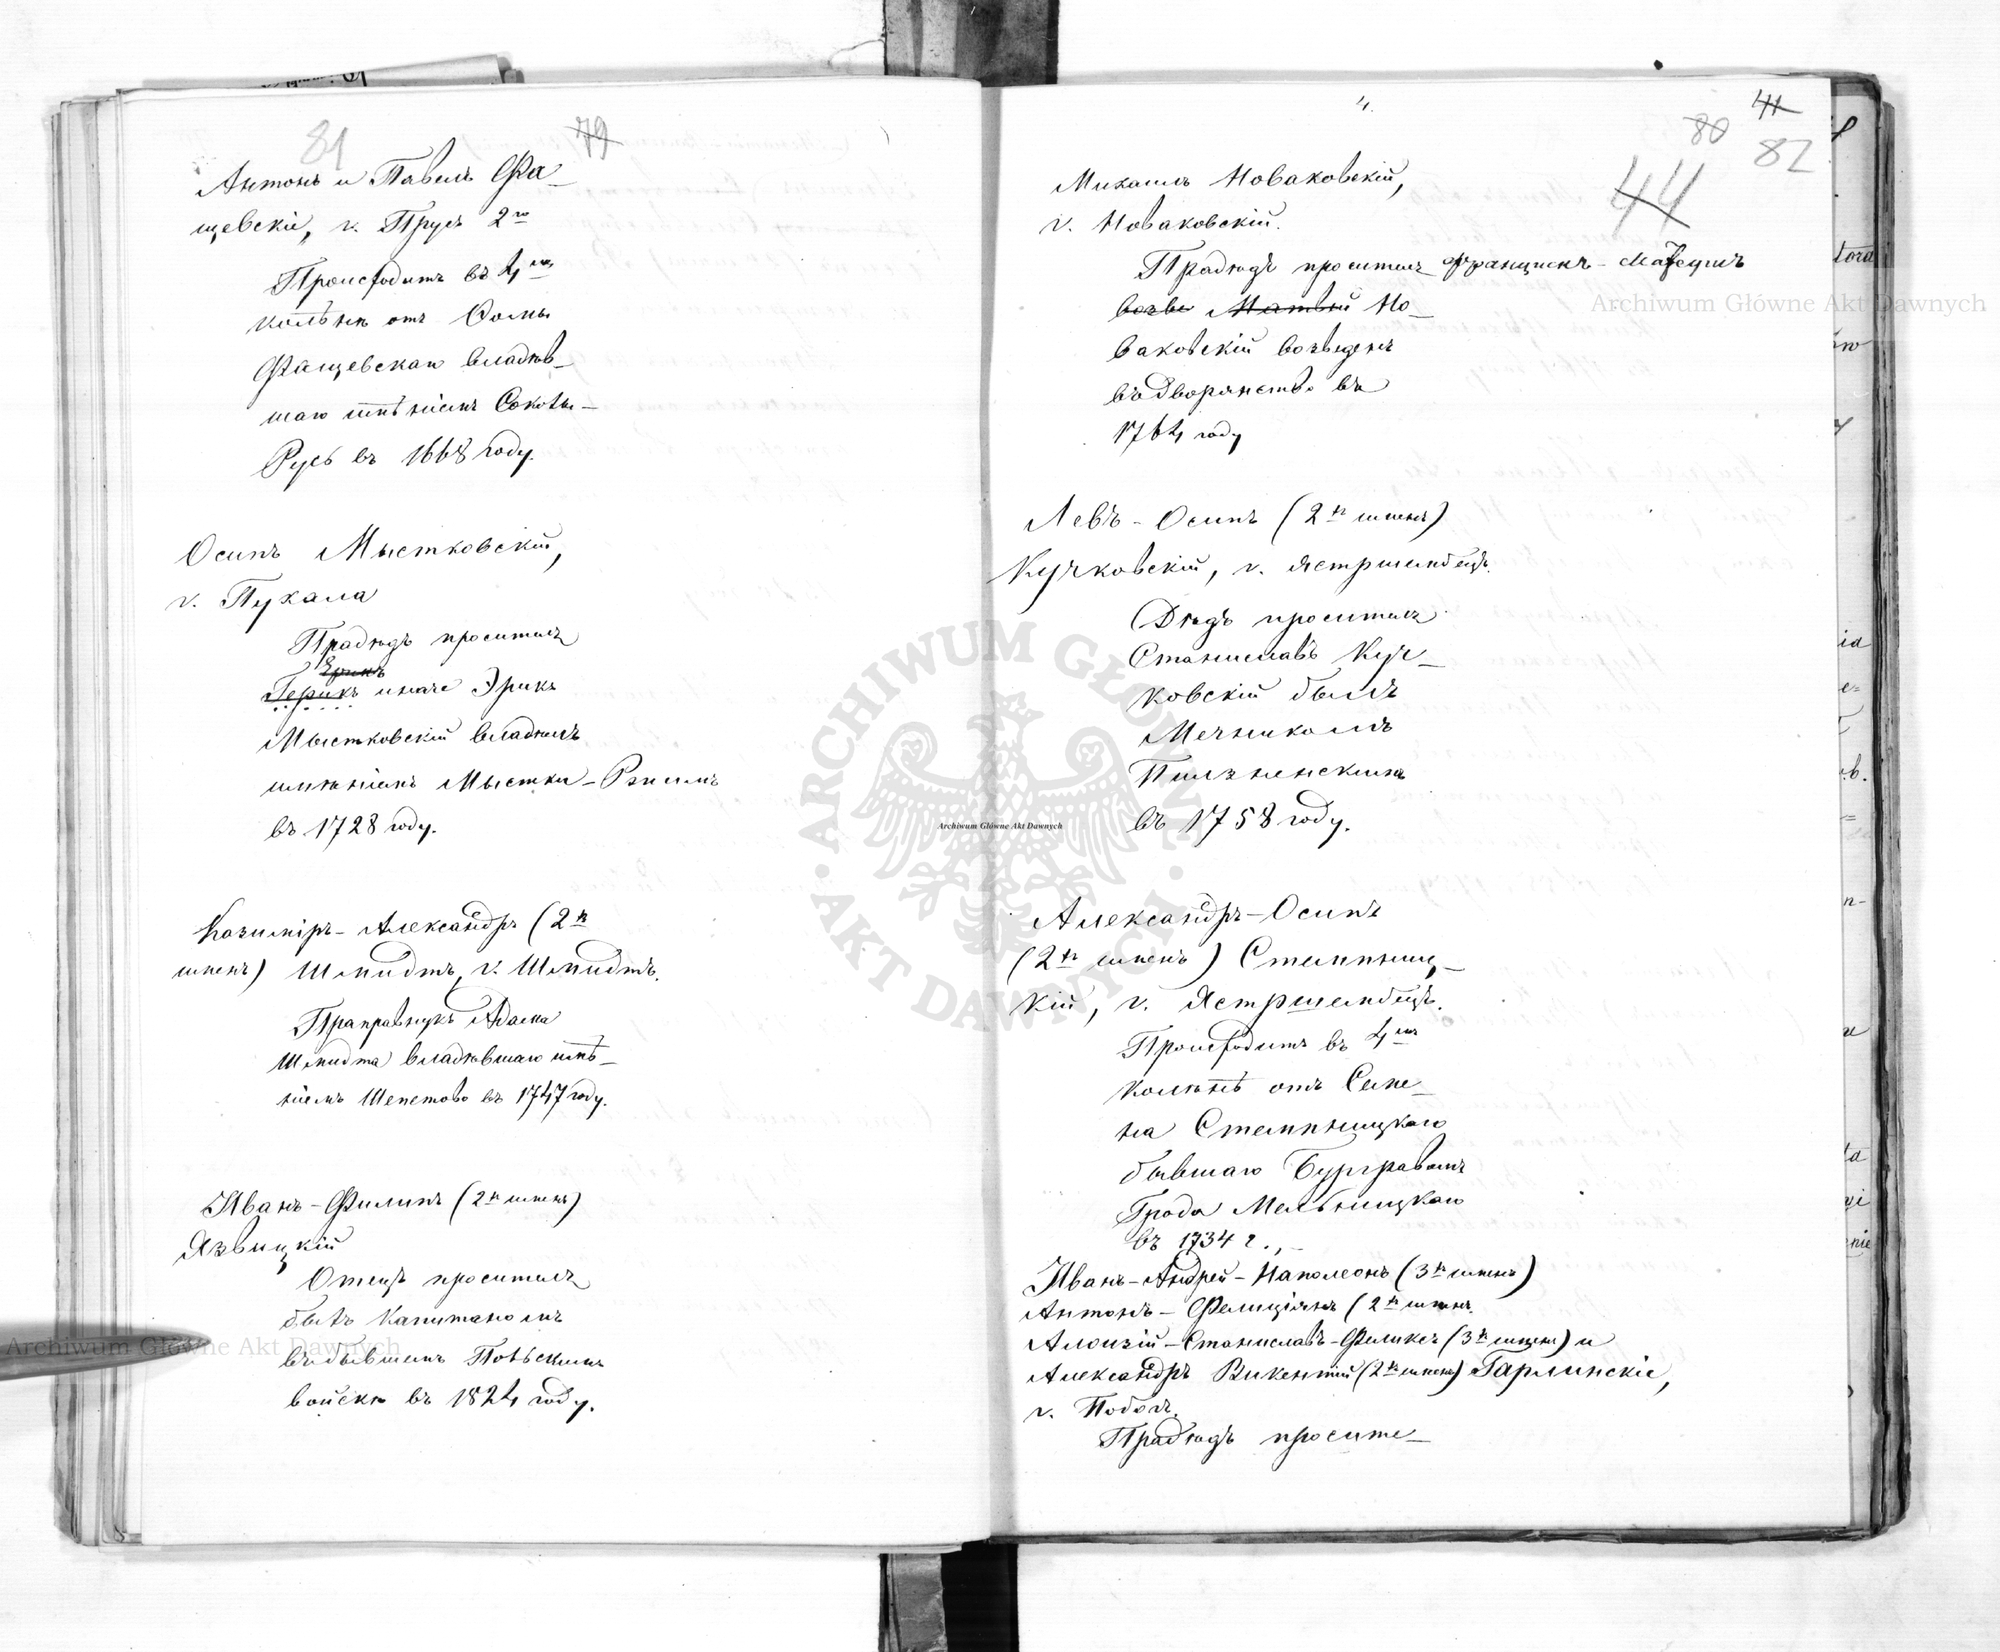 81
79
Антонъ и Павелъ Фа-
щевскіе, г. Прусъ 2го
Происходитъ въ 4мъ
колѣнѣ отъ Ѳомы
Фащевскаго владѣв-
шаго имѣніемъ Соколы-
Русь въ 1668 году.
Осипъ Мыстковскій,
г. Пухала
Прадѣдъ просителя
Ерикъ
Герикъ иначе Эрикъ
Мыстковскій владѣлъ
имѣніемъ Мыстки-Рзымъ
въ 1728 году.
Казиміръ-Александръ (2хъ
именъ) Шмидтъ, г. Шмидтъ.
Праправнукъ Адама
Шмидта владѣвшаго имѣ-
ніемъ Шепетово въ 1747 году.
Иванъ-Филипъ (2хъ именъ)
Язвицкій
Отецъ просителя
былъ Капитаномъ
въ бывшемъ Польскомъ
войскѣ въ 1824 году.
4.
41
80
82
44
Михаилъ Новаковскій,
г. Новаковскій.
Прадѣдъ просителя Францискъ-Матеушъ
Матвѣй Но-
ваковскій возведенъ
въ Дворянство въ
1764 году
Левъ-Осипъ (2хъ именъ)
Кучковскій, г. Ястршембецъ.
Дѣдъ просителя
Станиславъ Куч-
ковскій былъ
Мечникомъ
Пильзненскимъ
въ 1758 году.
Александръ-Осипъ
(2хъ именъ) Стемпниц-
кій, г. Ястршембецъ.
Происходитъ въ 4мъ
колѣнѣ отъ Семе-
на Стемпницкаго
бывшаго Бурграбомъ
Града Мельницкаго
въ 1734 г.,-
Иванъ-Андрей-Наполеонъ (3хъ именъ)
Антонъ-Фелиціянъ (2хъ именъ.
Алоизій-Станиславъ-Феликсъ (3хъ именъ) и
Александръ Викентій (2хъ именъ) Гарлинскіе,
г. Побогъ.
Прадѣдъ просите-
tora
ia
e=
.b.
=
n-
u
ta
gi
nie
Archiwum Główne Akt Dawnych
ARCHIWUM GŁÓWNE
AKT DAWNYCH
Archiwum Główne Akt Dawnych
Archiwum Główne Akt Dawnych